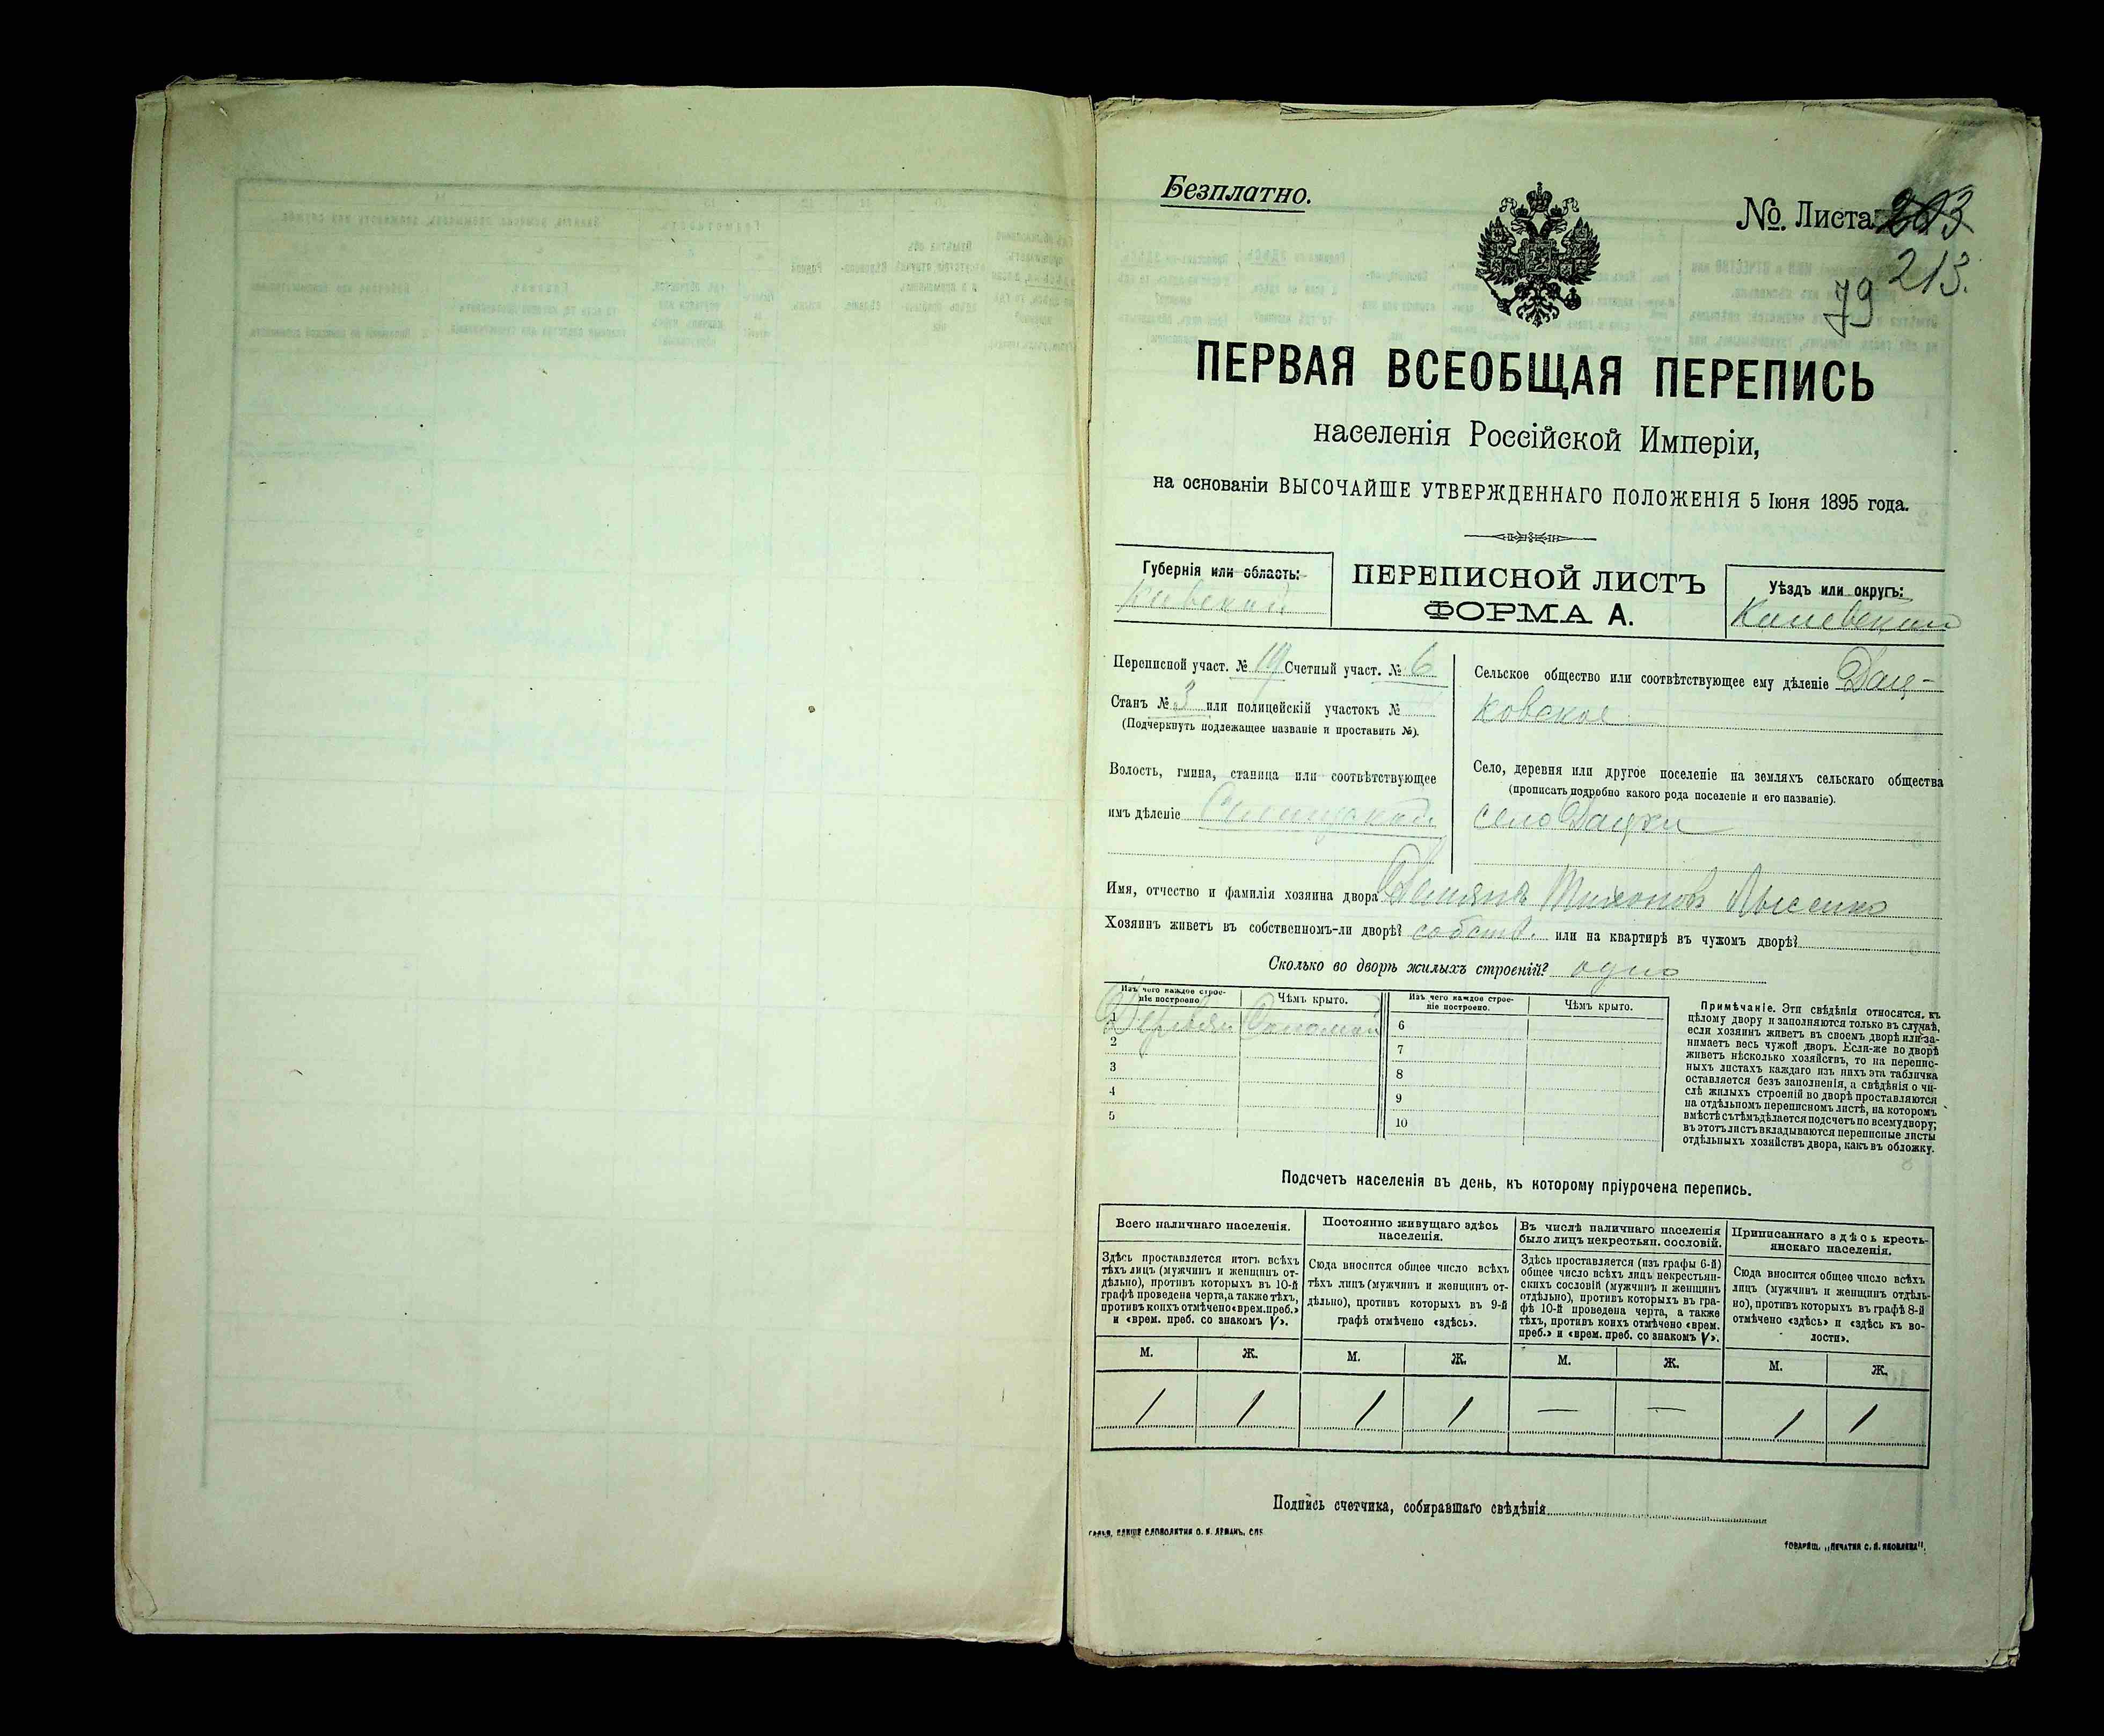 Безплатно.
№ Листа 203
213.
79
ПЕРВАЯ ВСЕОБЩАЯ ПЕРЕПИСЬ
населенія Россійской Имперіи,
на основаніи ВЫСОЧАЙШЕ УТВЕРЖДЕННАГО ПОЛОЖЕНІЯ 5 Іюня 1895 года.
Губернія или область:
Кіевской
ПЕРЕПИСНОЙ ЛИСТЪ
ФОРМА А.
Уѣздъ или округъ:
Каневскій
Переписной участ. № 19 Счетный участ. № 6
Станъ № 3 или полицейскій участокъ №
(Подчеркнуть подлежащее названіе и проставить №).
Волость, гмина, станица или соотвѣтствующее
имъ дѣленіе
Сельское общество или соотвѣтствующее ему дѣленіе Дац-
ковское
Село, деревня или другое поселеніе на земляхъ сельскаго общества
(прописать подробно какого рода поселеніе и его названіе).
село Дацки
Имя, отчество и фамилія хозяина двора Демянъ Тихоновъ Лысенко
Хозяинъ живетъ въ собственномъ-ли дворѣ? собств. или на квартирѣ въ чужомъ дворѣ?
Сколько во дворѣ жилыхъ строеній? одно
Изъ чего каждое строе-
ніе построено.
Чѣмъ крыто.
Изъ чего каждое строе-
ніе построено.
Чѣмъ крыто.
Деревян Соломой 6
2 7
3 8
4 9
5 10
Примѣчаніе. Эти свѣдѣнія относятся къ
цѣлому двору и заполняются только въ случаѣ,
если хозяинъ живетъ въ своемъ дворѣ или за-
нимаетъ весь чужой дворъ. Если-же во дворѣ
живетъ нѣсколько хозяйствъ, то на перепис-
ныхъ листахъ каждаго изъ нихъ эта табличка
оставляется безъ заполненія, а свѣдѣнія о чи-
слѣ жилыхъ строеній во дворѣ проставляются
на отдѣльномъ переписномъ листѣ, на которомъ
вмѣстѣ съ тѣмъ дѣлается подсчетъ по всему двору;
въ этотъ листъ вкладываются переписные листы
отдѣльныхъ хозяйствъ двора, какъ въ обложку.
Подсчетъ населенія въ день, къ которому пріурочена перепись.
Всего наличнаго населенія.
Здѣсь проставляется итогъ всѣхъ
тѣхъ лицъ (мужчинъ и женщинъ от-
дѣльно), противъ которыхъ въ 10-й
графѣ проведена черта, а также тѣхъ,
противъ коихъ отмѣчено «врем. преб.»
и «врем. преб. со знакомъ V».
Постоянно живущаго здѣсь
населенія.
Сюда вносится общее число всѣхъ
тѣхъ лицъ (мужчинъ и женщинъ от-
дѣльно), противъ которыхъ въ 9-й
графѣ отмѣчено «здѣсь».
Въ числѣ наличнаго населенія
было лицъ некрестьян. сословій.
Здѣсь проставляется (изъ графы 6-й)
общее число всѣхъ лицъ некрестьян-
скихъ сословій (мужчинъ и женщинъ
отдѣльно), противъ которыхъ въ гра-
фѣ 10-й проведена черта, а также
тѣхъ, противъ коихъ отмѣчено «врем.
преб.» и «врем. преб. со знакомъ V».
Приписаннаго здѣсь кресть-
янскаго населенія.
Сюда вносится общее число всѣхъ
лицъ (мужчинъ и женщинъ отдѣль-
но), противъ которыхъ въ графѣ 8-й
отмѣчено «здѣсь» и «здѣсь къ во-
лости».
М. Ж. М. Ж. М. Ж. М. Ж.
1 1 1 1 — — 1 1
Подпись счетчика, собиравшаго свѣдѣнія
ТОВАРИЩ. „ПЕЧАТНЯ С. П. ЯКОВЛЕВА".